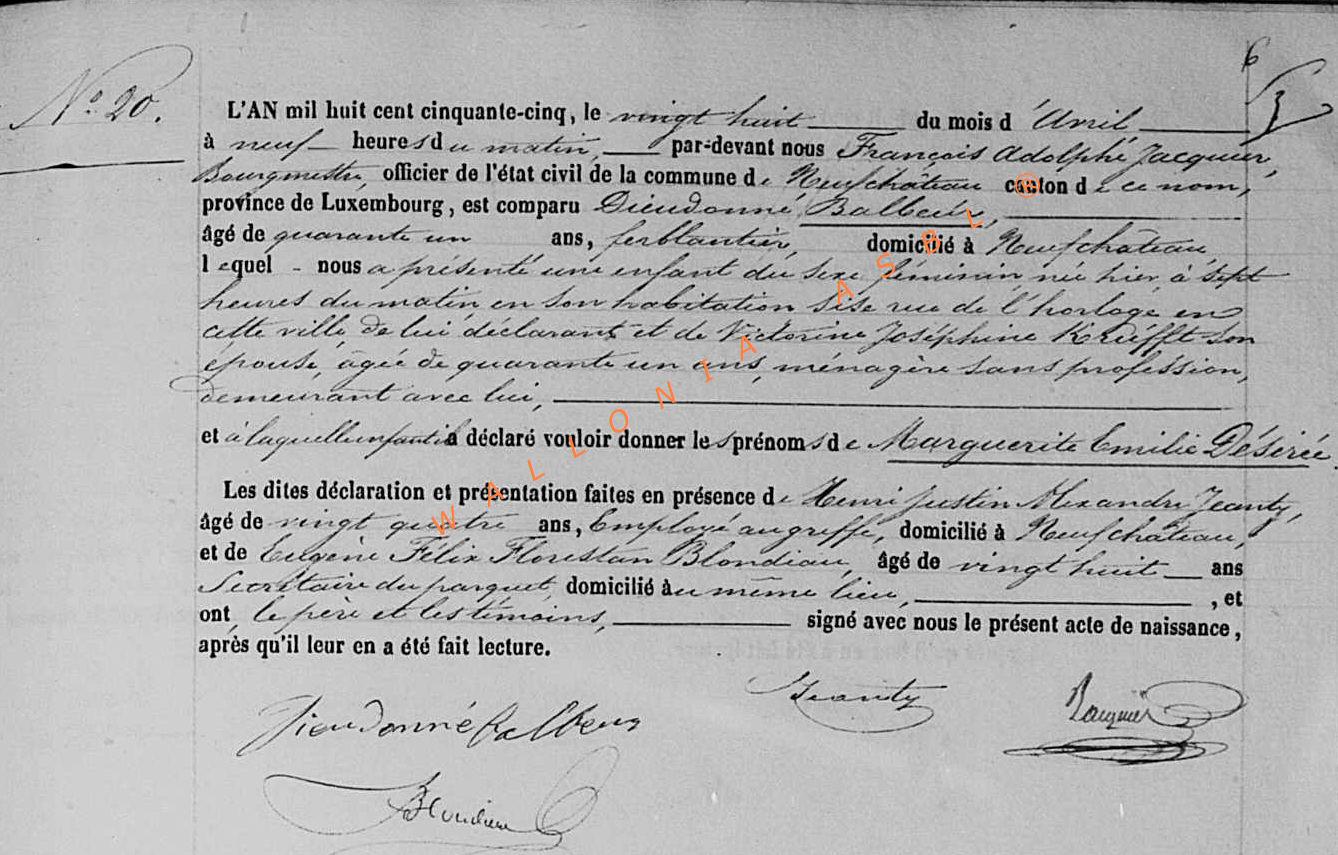 6
N.º 20.
L'AN mil huit cent cinquante-cinq, le vingt huit du mois d'Avril,
à neuf heures du matin, par-devant nous François Adolphe Jacquier,
Bourgmestre, officier de l'état civil de la commune de Neufchâteau canton de ce nom,
province de Luxembourg, est comparu Dieudonné Balbeur,
âgé de quarante un ans, ferblantier, domicilié à Neufchâteau,
lequel nous a présenté une enfant du sexe féminin, née hier, à sept
heures du matin, en son habitation sise rue de l'horloge en
cette ville, de lui déclarant et de Victorine Joséphine Krüfft son
épouse, âgée de quarante un ans, ménagère sans profession,
demeurant avec lui,
et à laquelle enfant il a déclaré vouloir donner les prénoms de Marguerite Emilie Désirée.
Les dites déclaration et présentation faites en présence de Henri Justin Alexandre Jeanty,
âgé de vingt quatre ans, Employé au greffe, domicilié à Neufchâteau,
et de Eugène Félix Florestan Blondiau, âgé de vingt huit ans
Secrétaire du parquet, domicilié au même lieu, , et
ont le père et les témoins, signé avec nous le présent acte de naissance,
après qu'il leur en a été fait lecture.
Jeanty
Jacquier
Dieudonné Balbeur
Blondiau
WALLONIA ASBL ®